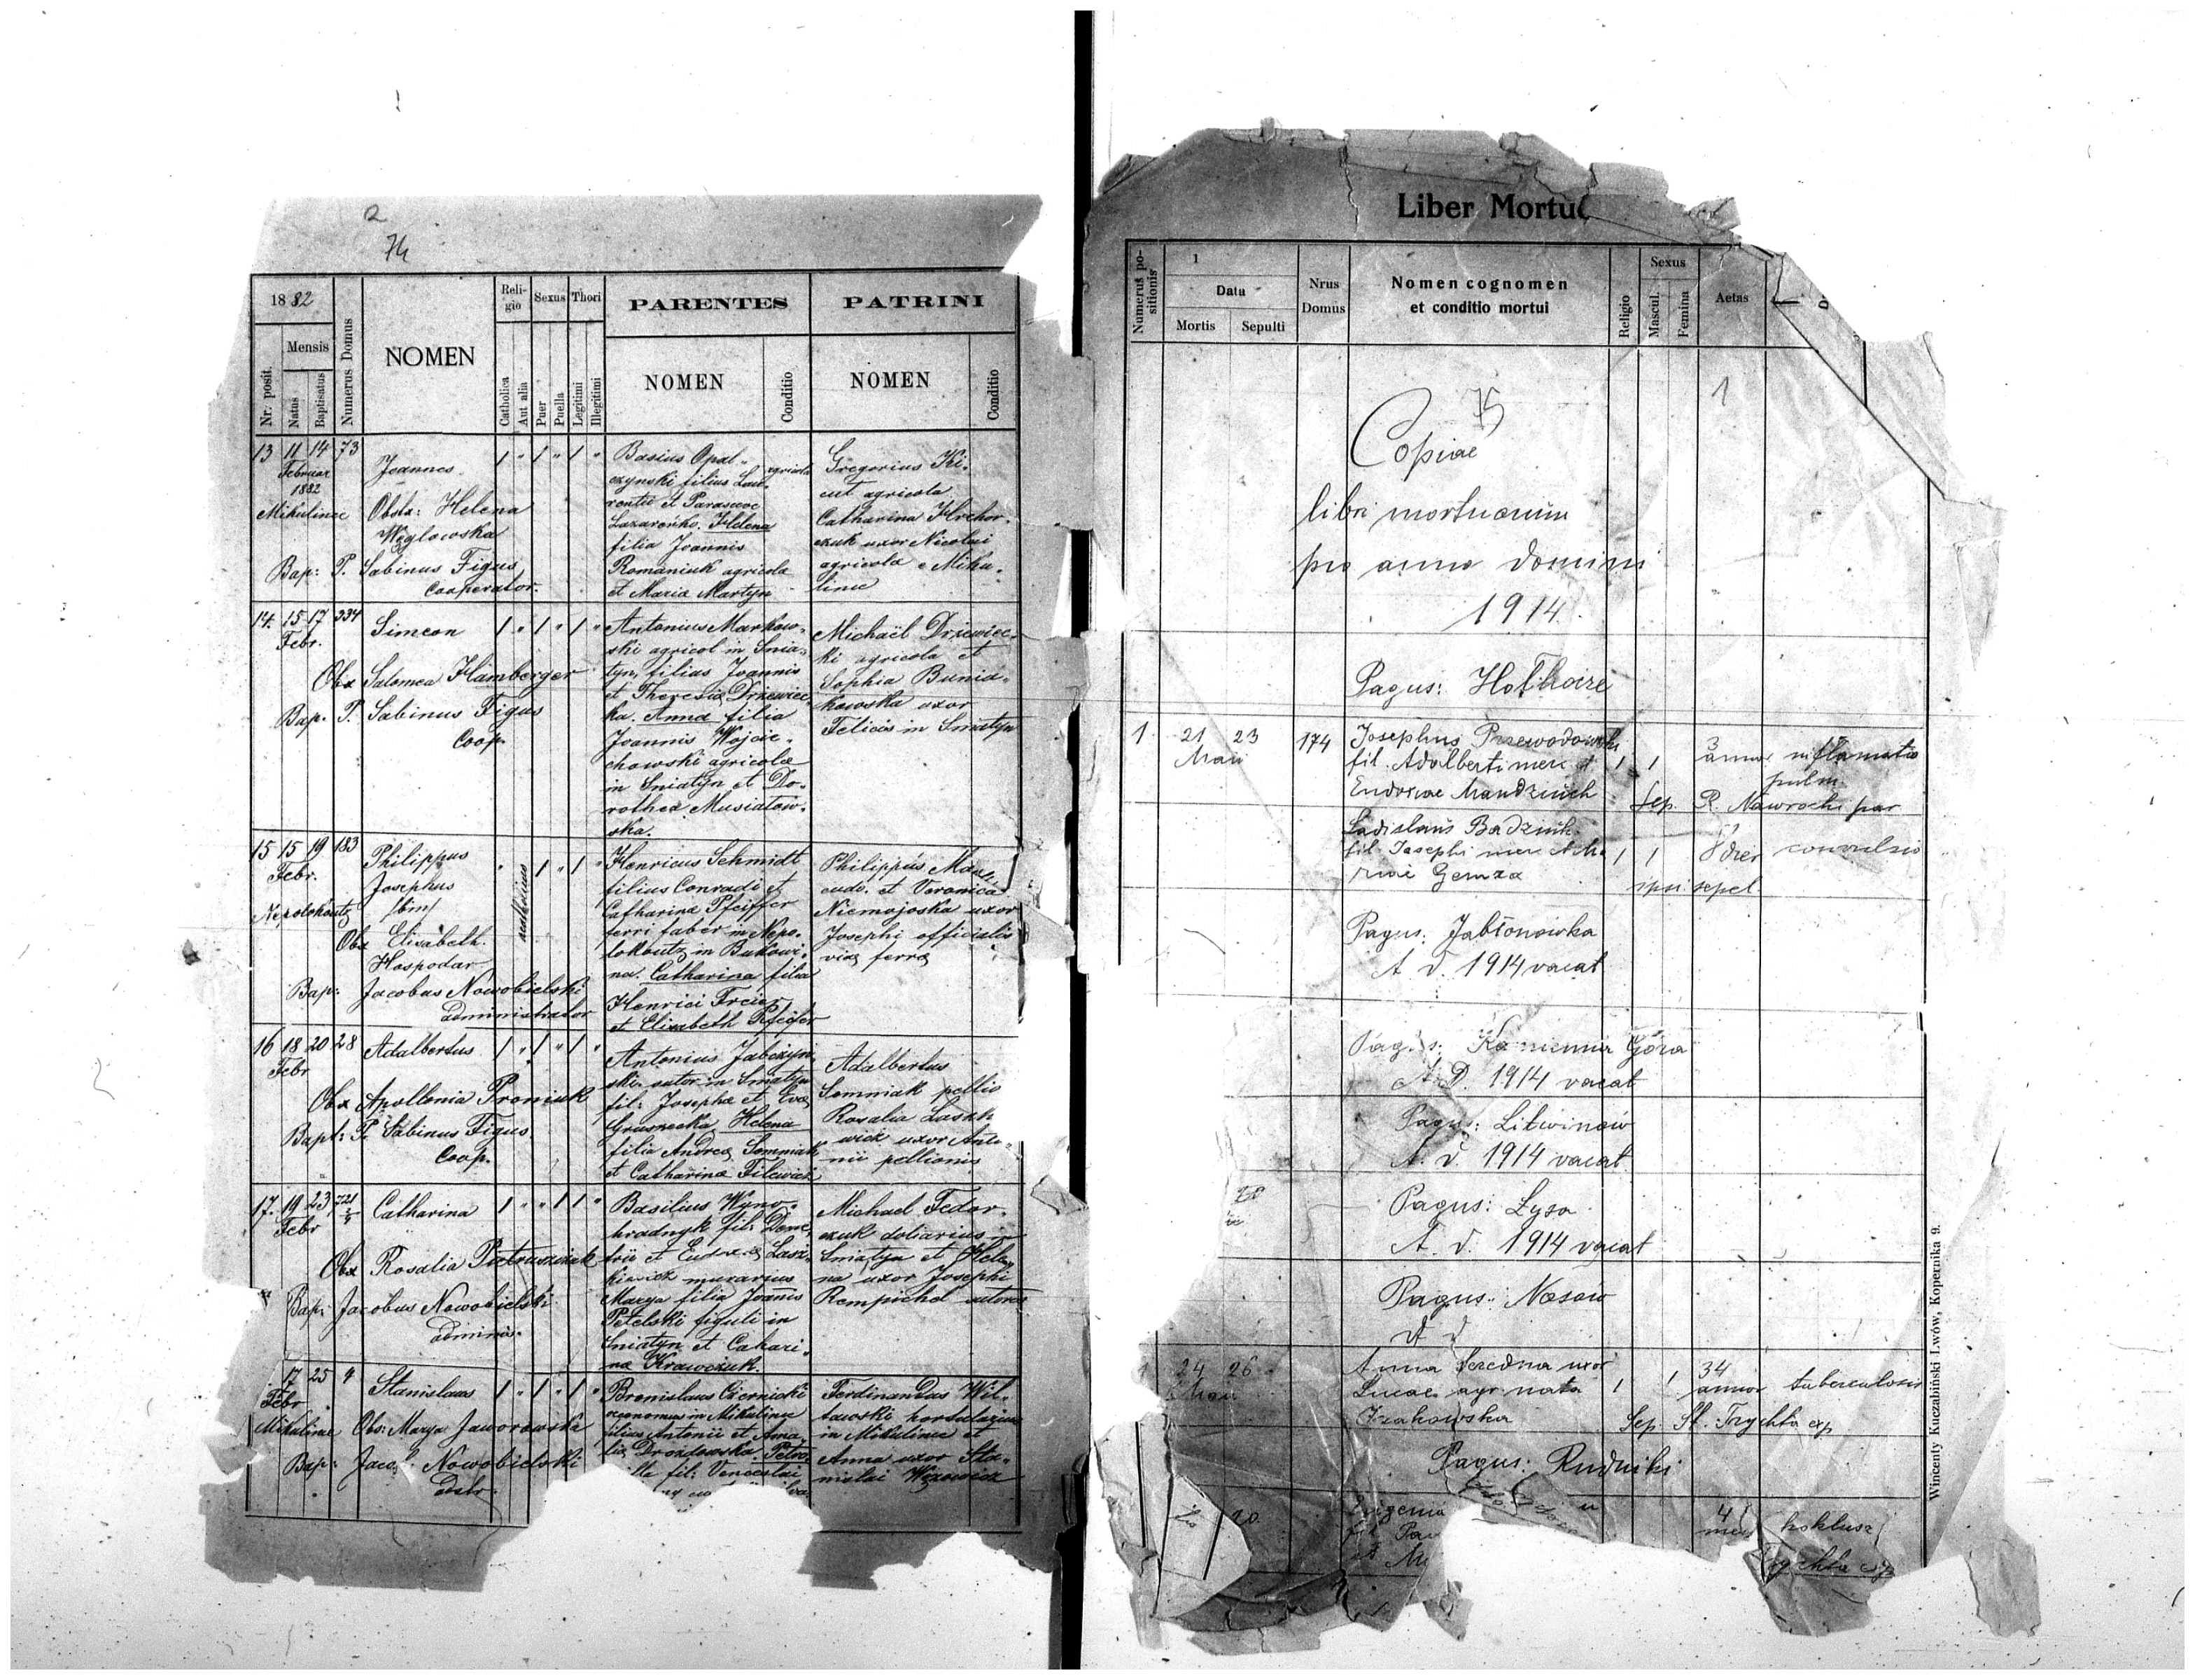 2
74
1882
Nr. posit.
Mensis
Natus
Baptisatus
Numerus Domus
NOMEN
Religio
Catholica
Aut alia
Sexus
Puer
Puella
Thori
Legitimi
Illegitimi
PARENTES
NOMEN
Conditio
PATRINI
NOMEN
Conditio
13 11 14 73
Februar
1882
Mikulince
Joannes
Obstx: Helena
Węglowska
Bap: P. Sabinus Figus
Cooperator.
1 " 1 " 1 "
Basius Opal-
czynski filius Lau-
rentii et Parascevae
Lazareńko. Helena
filia Joannis
Romaniuk agricola
et Maria Martyn
agricola
Gregorius Ki-
cut agricola
Catharina Hrehor-
czuk uxor Nicolai
agricola e Miku-
lince
14. 15 17 334
Febr.
Simeon
Obx Salomea Hamberger
Bap. P. Sabinus Figus
Coop.
1 " 1 " 1 "
Antonius Markow-
ski agricol in Snia-
tyn, filius Joannis
et Theresia Drzewiec-
ka. Anna filia
Joannis Wojcie-
chowski agricolae
in Sniatyn et Do-
rothea Musiatow-
ska.
Michaël Drzewiec-
ki agricola et
Sophia Bunia-
kowska uxor
Felicis in Sniatyn
15 15 19 183
Febr.
Nepolokoutz
Philippus
Josephus
/bim/
Obx Elisabeth
Hospodar
Bap: Jacobus Nowobielski
administrator
1 "
Henricus Schmidt
filius Conradi et
Catharina Pfeiffer
ferri faber in Nepo-
lokoutz in Bukowi-
na. Catharina filia
Henrici Freier
et Elisabeth Pfeifer
Philippus
et Veronica
Niemojoska uxor
Josephi officialis
via ferra
16 18 20 28
Febr
Adalbertus
Obx Apollonia Proniuk
Bapt: P. Sabinus Figus
Coop.
1 " 1 " 1 "
Antonius Jabczyn-
ski sutor in Sniatyn
fil: Josepha et Eva
Helena
filia Andrea Somniak
et Catharina Filewicz
Adalbertus
Somniak pellio
Rosalia Lasz-
wicz uxor Anto-
nii pellionis
17. 19 23 721
Febr
Catharina
Obx Rosalia Pietruszniak
Bap: Jacobus Nowobielski
adminis.
1 " " 1 1 "
Basilius Wyno-
hradnyk fil: Deme-
trii et Eudoxia Lasz-
kiewicz murarius
Marya filia Joannis
Petelski figuli in
Sniatyn et Cahari-
na Krawczuk.
Michael Fedor-
czuk doliarius in
Sniatyn et Hele-
na uxor Josephi
Rempichel sutoris
17 25 4
Febr
Mikulince
Stanislaus
Obs: Marya Jaworowska
Bap: Jacob Nowobielski
1 " 1 " 1 "
Bronislaus Czernicki
oeconomus in Mikulince
filius Antonii et Ama-
lia Drozdowska. Petro-
lla fil: Venceslai
Ferdinandus Wil-
tawski hortulanus
in Mikulince et
Anna uxor Sta-
nislai Wąsowicz
Liber Mortuo
Numerus positionis
1
Data
Mortis
Sepulti
Nrus
Domus
Nomen cognomen
et conditio mortui
Religio
Sexus
Mascul.
Femina
Aetas
1
75
Copiae
libri mortuorum
pro anno domini
1914
Pagus: Hołhocze
1. 21 23 174
Maii
Josephus Przewodowski
fil. Adalberti merc et
Eudoxiae Mandziuch
1 1
3
annor inflamatio
pulm.
Sep. R. Nawrocki par
Ladislaus Badziuk
fil. Josephi merc et Ma
riae Gemza
1 1
8 dier convulsio
ipsi sepel
Pagus: Jabłonówka
A. D. 1914 vacat
Pagus: Kamienna Góra
A. D. 1914 vacat
Pagus: Litwinów
A. D. 1914 vacat
Pagus: Łysa
A. D. 1914 vacat
Pagus: Nosów
A D
24 26
Maii
Anna Seredna uxor
Lucae agr nata
Czakowska
1 1
34
annor tuberculosis
Sep. St. Trychta exp
Pagus: Rudniki
20
Eugenia
fil
et
4
mens koklusz
Trychta exp
Wincenty Kuczabiński Lwów, Kopernika 9.